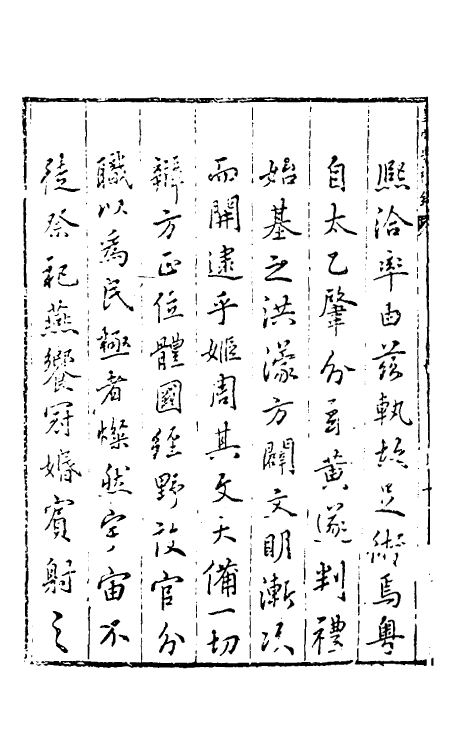 熙洽率由茲執故足術焉粵
自太乙肇分玄黃遂判禮
始基之洪濛方闢文明漸次
而開逮乎姬周其文大備一切
辨方正位體國經野設官分
職以爲民極者燦然宇宙不
徒祭祀燕饗冠婚賓射之